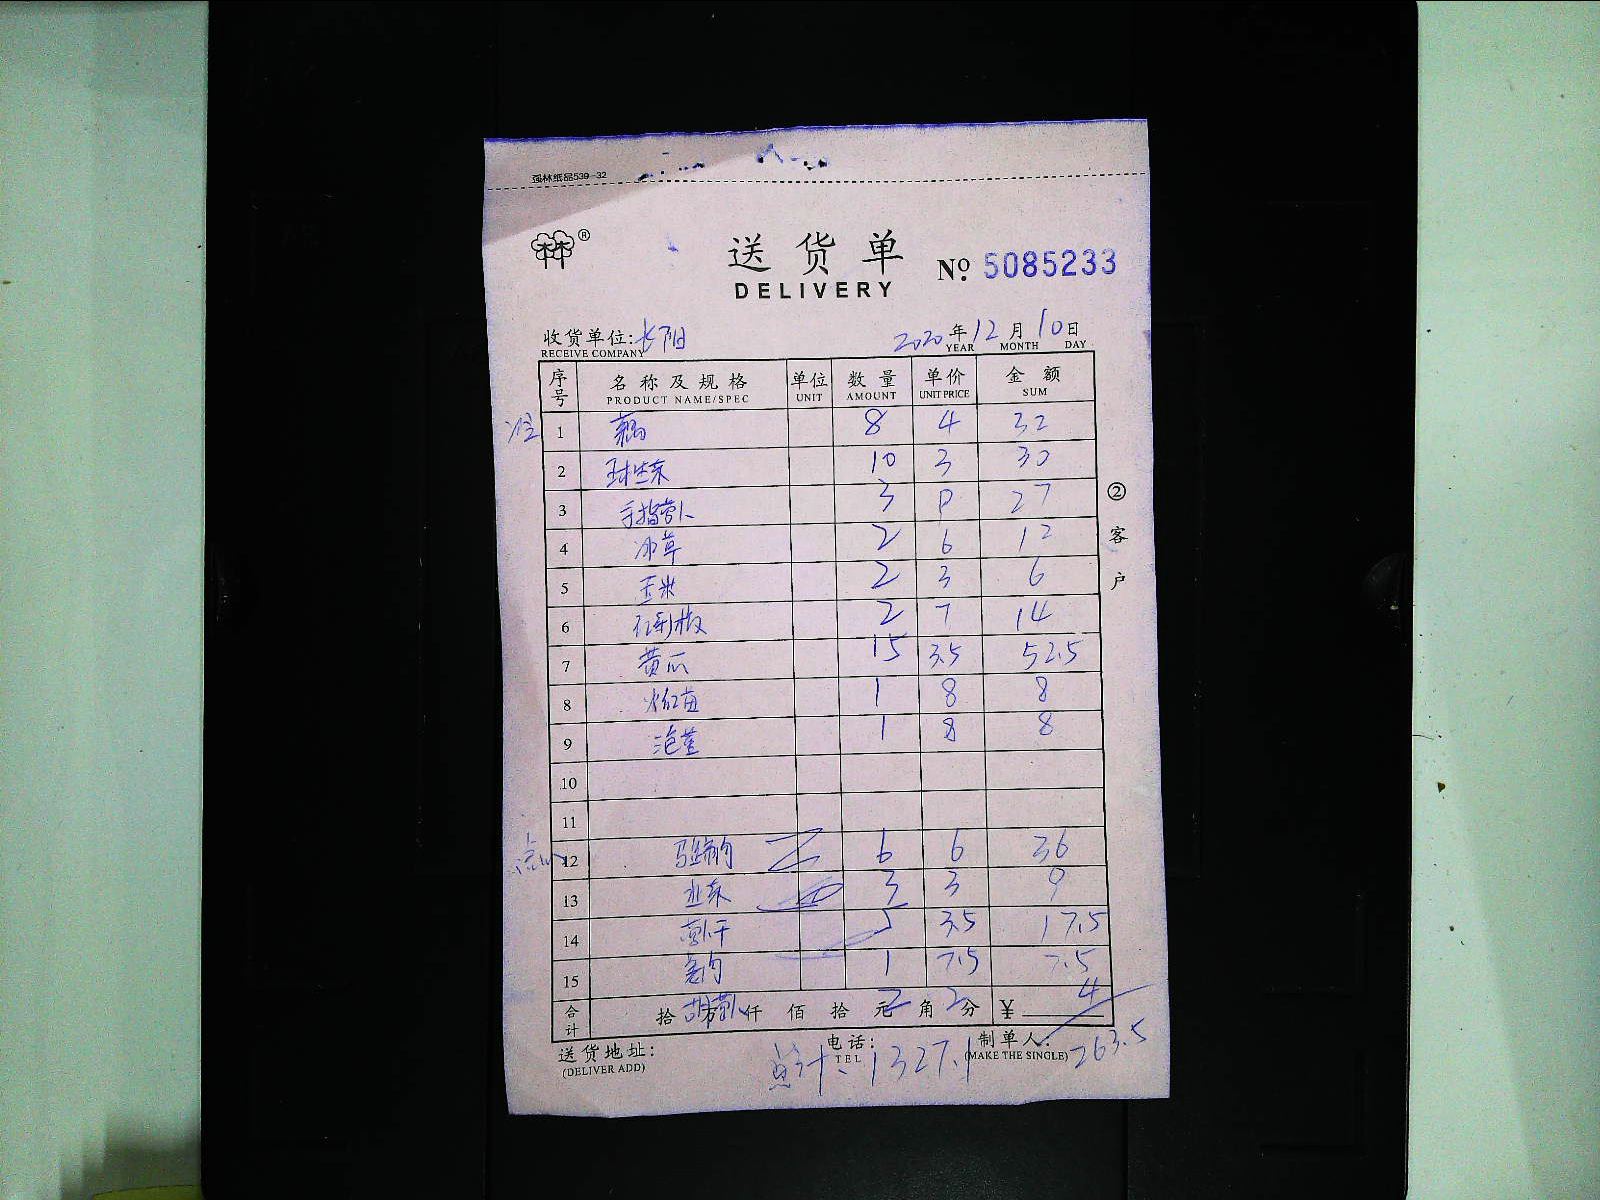 强林纸品539-32
®
送货单
No 5085233
DELIVERY
收货单位:长阳 2020年12月10日
RECEIVE COMPANY YEAR MONTH DAY
序号 名称及规格 单位 数量 单价 金额
PRODUCT NAME/SPEC UNIT AMOUNT UNIT PRICE SUM
1 藕 8 4 32
2 球生菜 10 3 30
3 手指萝卜 3 9 27
4 冰草 2 6 12
5 玉米 2 3 6
6 2 7 14
7 黄瓜 15 3.5 52.5
8 火红苗 1 8 8
9 1 8 8
10
11
12 6 6 36
13 韭菜 3 3 9
14 萝卜干 5 3.5 17.5
15 1 7.5 7.5
胡萝卜 2 2 4
合计 拾 万 仟 佰 拾 元 角 分 ¥
②客户
送货地址: 电话: 制单人:
(DELIVER ADD) TEL (MAKE THE SINGLE) 263.5
总计: 1327.1